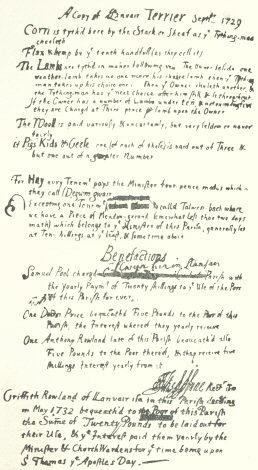 A Copy of Lanvair Terrier Sept. 1729
Corn is tythd here by the Stack or Sheaf as ye Tything-man
chooseth
Flax & hemp by ye tenth handfull (as they call it)
The Lambs are tythd in manner following viz. The Owner selds one
weather lamb takes no one more his choice lamb then ye Tything
man takes up his choice one. Then ye Owner chaleth another, &
the Tythingman hay ye next choice after him self & so throughout
If the Owner has a number of Lambs under ten & uneven
they are Changed at Three pence p lamb upon the Owner
The Wooll is paid variously & uncertainly, but very seldom or never
fairly
If Pigs Kids & Geese one (of each of these) is nand out of Three &
but one out of a greater Number
For Hay every Tenemt pays the Minister four pence modus which
they call Degwm gwair
(Excepting one Tenemt called Talwrn-bach where
we have a Piece of Meadow-ground (somewhat less that two days
math) which belongs to ye Minister of this Parish, generally let
at Ten shillings at ye least, & sometime above
Benefactions
Samuel Pool charged Parish with
the yearly Paymt of Twenty shillings to ye Use of the Poor
of this Parish for ever,
One Poor Price bequeathd Five Pounds to the Poor of this
Parish, the Interest whereof they yearly receive
One Anthony Rowland late of this Parish bequeath'd also
Five Pounds to the Poor thereof, & they receive five
shillings Interest yearly from it
Griffith Rowland of Lanvair in this Parish
in May 1732 bequeath'd to the Poor of this Parish
the Sume of Twenty Pounds to be laid out for
their Use, & ye Interest paid them yearly by the
Minister & Church Wardens for ye time being upon
St Thomas ye Apostles Day.